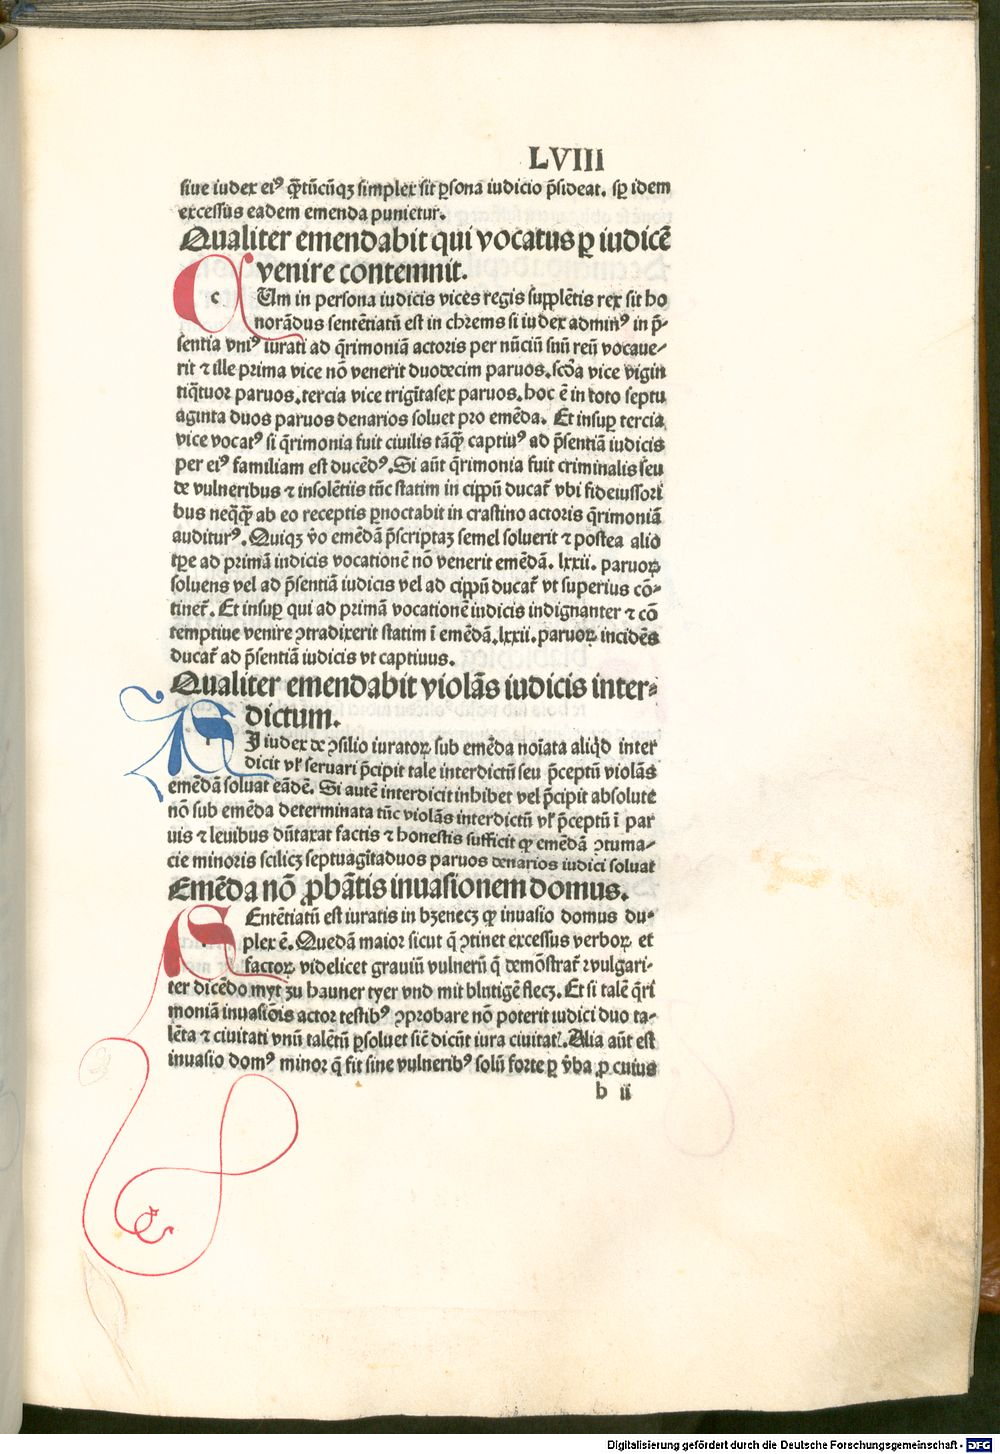 LVIII
siue iudex eiꝰ q̄tūcūqꝫ simplex sit ꝑsona iudicio p̄sideat. sꝑ idem
excessus eadem emenda punietur.
Qualiter emendabit qui vocatus ꝑ iudicē
venire contemnit.
c Um in persona iudicis vices regis supplētis rex sit ho
norādus sentētiatū est in chrems si iudex adminꝰ in p̄-
sentia vniꝰ iurati ad q̄rimoniā actoris per nūciū suū reū vocaue-
rit ⁊ ille prima vice nō venerit duodecim paruos. scd̄a vice vigin
tiq̄tuor paruos. tercia vice trigītasex paruos. hoc ē in toto septu
aginta duos paruos denarios soluet pro emēda. Et insuꝑ tercia
vice vocatꝰ si q̄rimonia fuit ciuilis tāq̄ꝫ captiuꝰ ad p̄sentiā iudicis
per eiꝰ familiam est ducēdꝰ. Si aūt q̄rimonia fuit criminalis seu
de vulneribus ⁊ insolētiis tūc statim in cippū ducať vbi fideiussori
bus neq̄q̄ꝫ ab eo receptis ꝑnoctabit in crastino actoris q̄rimoniā
auditurꝰ. Quiqꝫ v̄o emēdā p̄scriptaꝫ semel soluerit ⁊ postea alio
tꝑe ad primā iudicis vocationē nō venerit emēdā. lxxii. paruoꝝ
soluens vel ad p̄sentiā iudicis vel ad cippū ducať vt superius cō-
tineť. Et insuꝑ qui ad primā vocationē iudicis indignanter ⁊ cō
temptiue venire ↄtradixerit statim ī emēdā. lxxii. paruoꝝ incidēs
ducať ad p̄sentiā iudicis vt captiuus.
Qualiter emendabit violās iudicis inter-
dictum.
I iudex de ↄsilio iuratoꝝ sub emēda noīata aliqd̄ inter
dicit vł seruari p̄cipit tale interdictū seu p̄ceptū violās
emēdā soluat eādē. Si autē interdicit inhibet vel p̄cipit absolute
nō sub emēda determinata tūc violās interdictū vł p̄ceptū ī par
uis ⁊ leuibus dūtaxat factis ⁊ honestis sufficit ꝙ emēdā ↄtuma-
cie minoris scilicꝫ septuagītaduos paruos denarios iudici soluat
Emēda nō ꝓbātis inuasionem domus.
Entētiatū est iuratis in bꝫenecꝫ ꝙ inuasio domus du-
plex ē. Quedā maior sicut q̄ ↄtinet excessus verboꝝ et
factoꝝ videlicet grauiū vulnerū q̄ demōstrať ⁊vulgari-
ter dicēdo myt ꝫu hauner tyer vnd mit blutigē flecꝫ. Et si talē q̄ri
moniā inuasiōis actor testibꝰ ↄprobare nō poterit iudici duo ta-
lēta ⁊ ciuitati vnū talētū ꝑsoluet sic̄ dicūt iura ciuitatꝭ. Alia aūt est
inuasio domꝰ minor q̄ fit sine vulneribꝰ solū forte ꝑ v̄ba ꝓ cuius
b ii
Digitalisierung gefördert durch die Deutsche Forschungsgemeinschaft - DFG